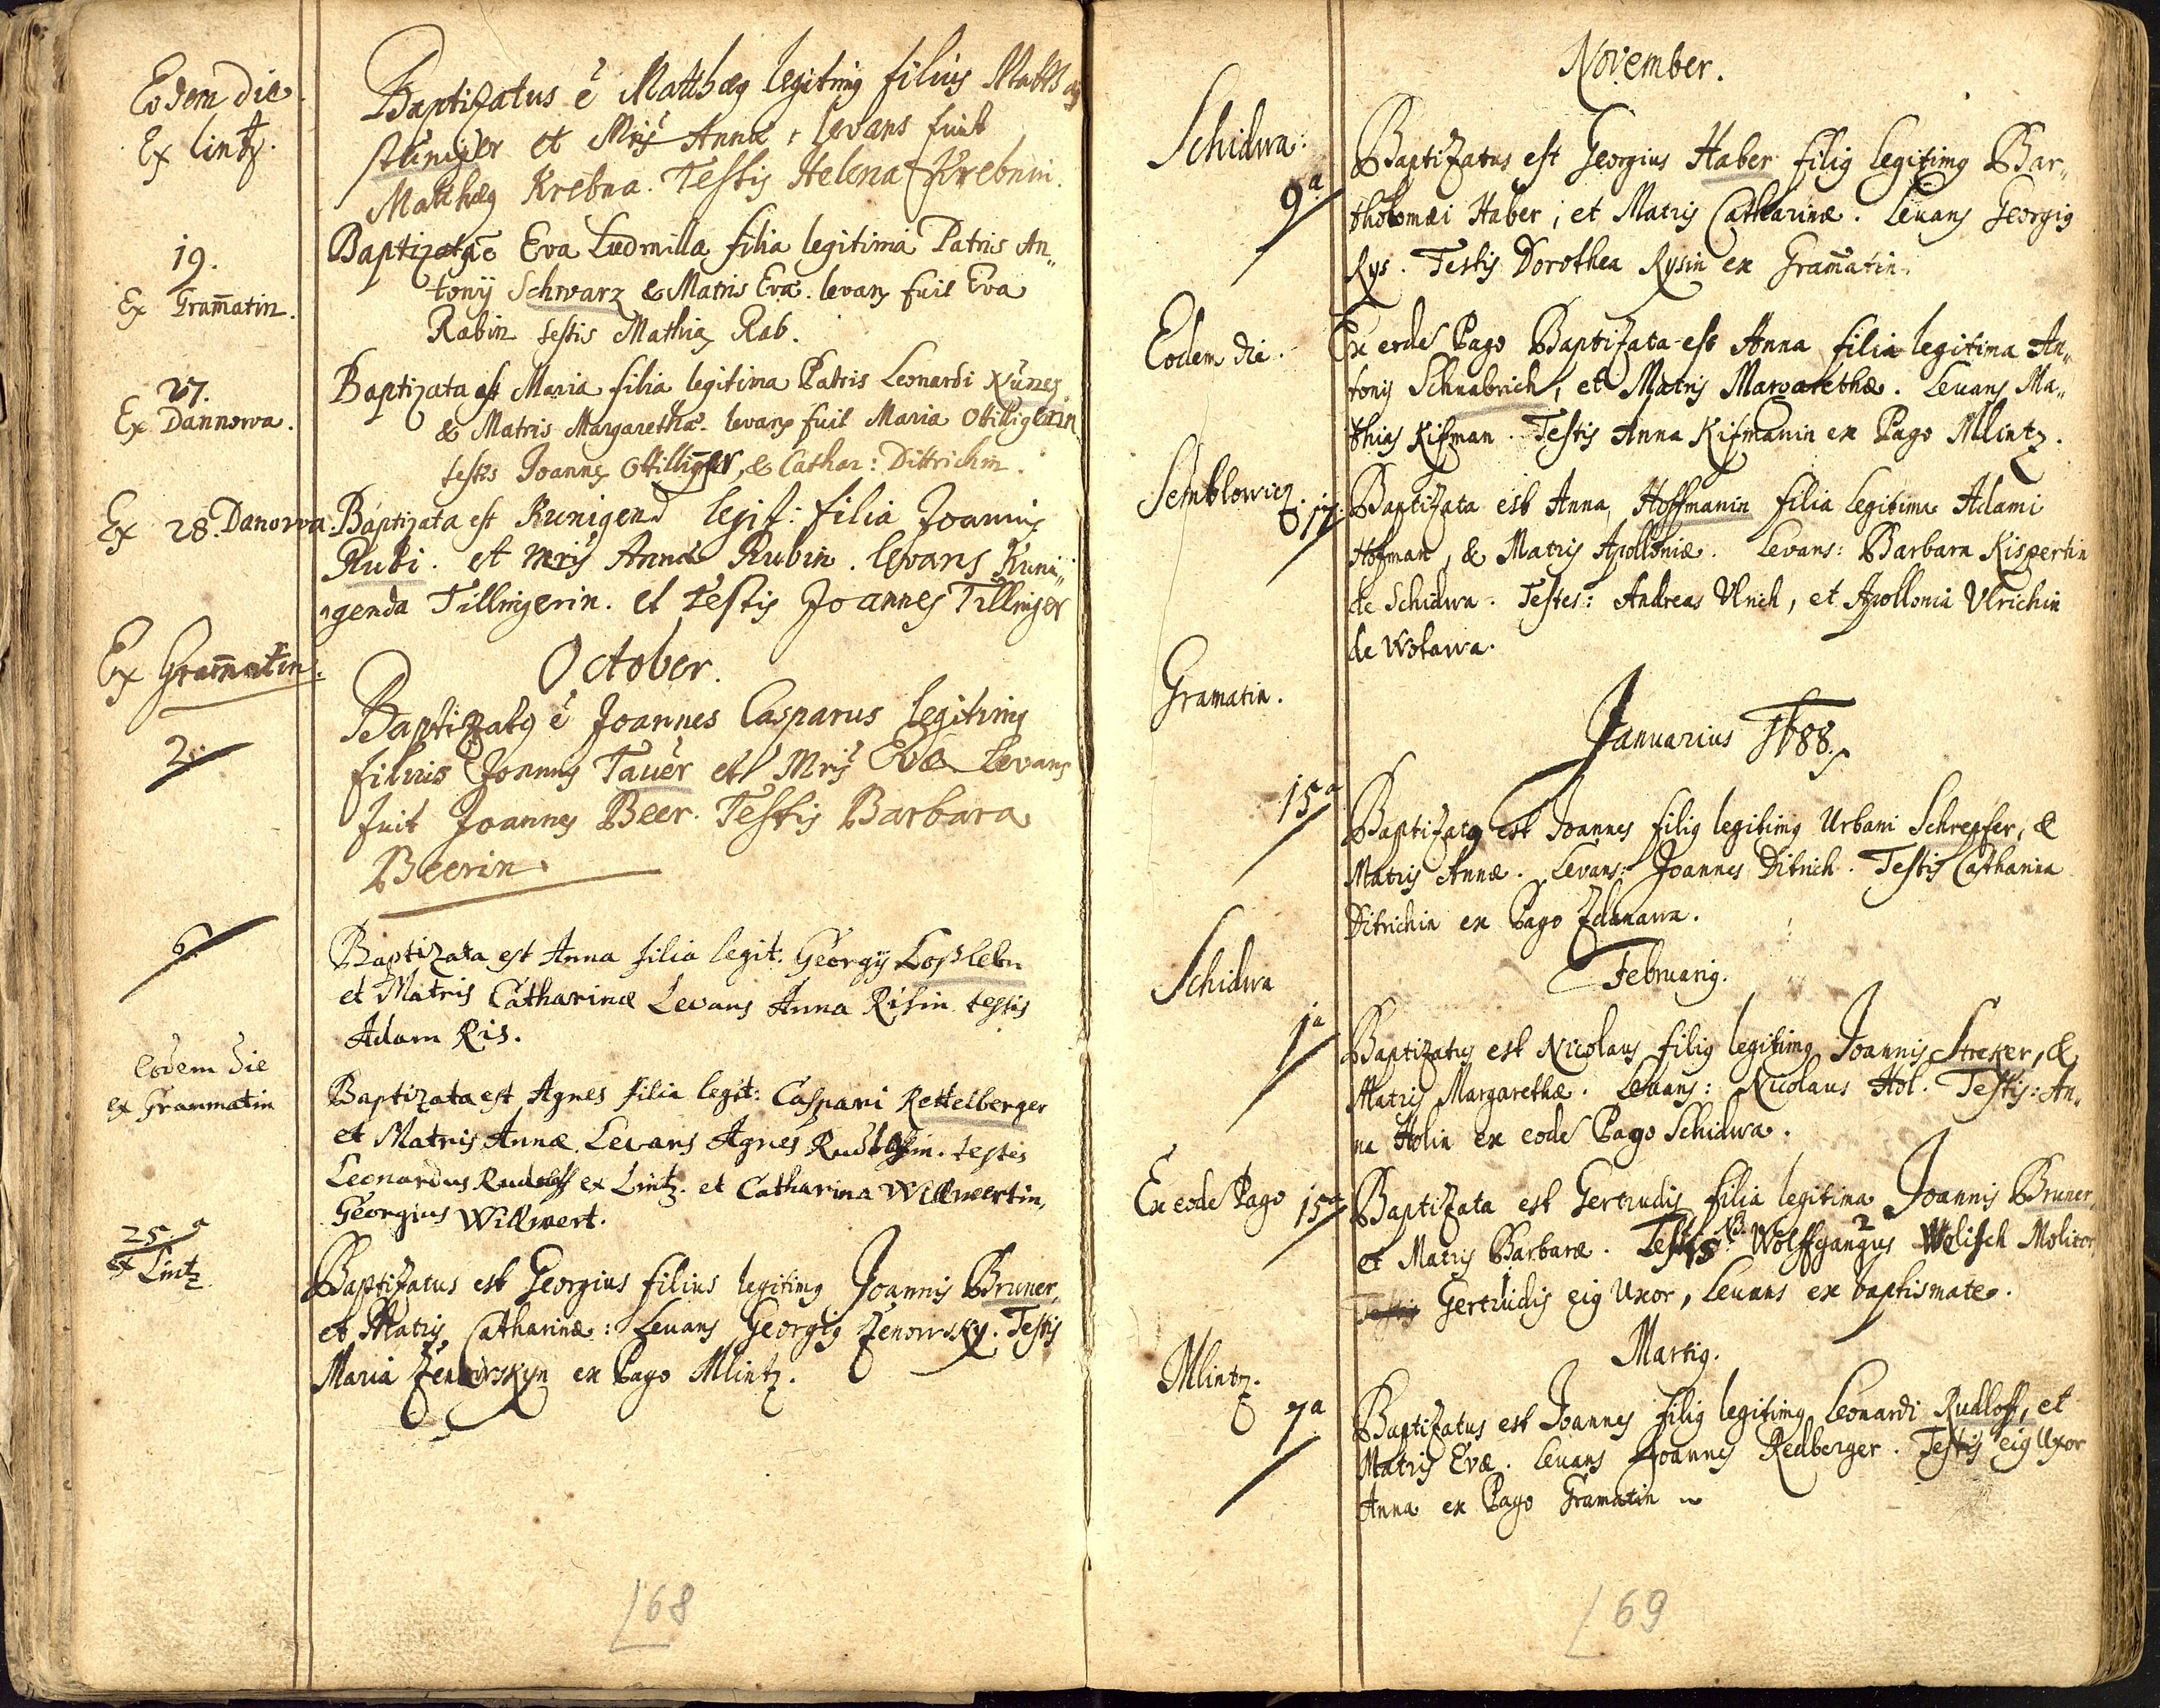 Eodem die
Ex lintz.
Baptizatus ē Matthæg legitimg filius Matthæg
stüniger et Mris Annæ, levans fuit
Matthæg Krebna. Testis Helena Krebnin.
19.
Ex Gram̄atin.
Baptizatg ē Eva Ludmilla filia legitima Patris An„
tonij Schwarz & Matris Evæ. levans fuit Eva
Rabin testis Mathias Rab.
27.
Ex Dannowa.
Baptizata est Maria filia legitima Patris Leonardi
& Matris Margarethæ. levans fuit Maria Ottilligerin
testes Joannes Ottillinger, & Cathar: Dittrichin.
Ex 28. Danowa.
Baptizata est Kunigend legit: filia Joannis
Rubi. et mris Annæ Rubin. levans Kuni„
genda Tillingerin. et testis Joannes Tillinger
Ex Gram̄atin.
October.
2.
Baptizatg ē Joannes Casparus legitimg
filius Joannis Tauer et Mris Evæ Levans
fuit Joannes Beer. Testis Barbara
Beerin.
6.
Baptizata est Anna filia legit: Georgij Loslebn
et Matris Catharinæ Levans Anna Risin testis
Adam Ris.
eodem die
ex Grammatin
Baptizata est Agnes filia legit: Caspari Rettelberger
et Matris Annæ Levans Agnes Rudloffin. testes
Leonardus Rudloff ex Lintz. et Catharina Willwertin,
Georgius Willwert.
25.a
ex Lintz
Baptizatus est Georgius filius legitimg Joannis Bruner,
et Matris Catharinæ: Levans Georgig Zenowsky. Testis
Maria Zenowskyn ex Pago Mlintz.
168
November.
Schidwa:
9a
Baptizatus est Georgius Haber filig legitimg Bar„
tholomæi Haber, et Matris Catharinæ. Levans Georgig
Rys. Testis Dorothea Rysin ex Gram̄atin.
Eodem die.
Ex eodē Pago Baptizata est Anna filia legitima An„
tonij Schnabrich, et Matris Margarethæ. Levans Ma„
thias Kisman. Testis Anna Kismanin ex Pago Mlintz.
Semblowicz. 17.
Baptizata est Anna Hoffmanin filia legitima Adami
Hofman, & Matris Apolloniæ. Levans: Barbara Kispertin
de Schidwa. Testes: Andreas Ulrich, et Apollonia Ulrichin
de Wotawa.
Gramatin.
Januarius 1688.
15a
Baptizatg est Joannes filig legitimg Urbani Schrepfer, &
Matris Annæ. Levans: Joannes Ditrich. Testis Catharina
Ditrichin ex Pago Zdanawa.
Februarig.
Schidwa
1a
Baptizatus est Nicolaus filig legitimg Joannis Streker, &
Matris Margarethæ. Levans: Nicolaus Hol. Testis: An„
na Holin ex eodē Pago Schidwa.
Ex eodē Pago 15a
Baptizata est Gertrudis filia legitima Joannis Bruner,
et Matris Barbaræ. Testis NB. Wolffgangus Wolisch Molitor
Testis Gertrudis eig Uxor, Levans ex baptismate.
Martig.
Mlintz.
7a
Baptizatus est Joannes filig legitimg Leonardi Rudloff, et
Matris Evæ. Levans Joannes Redberger. Testis eig Uxor
Anna ex Pago Gramatin
169